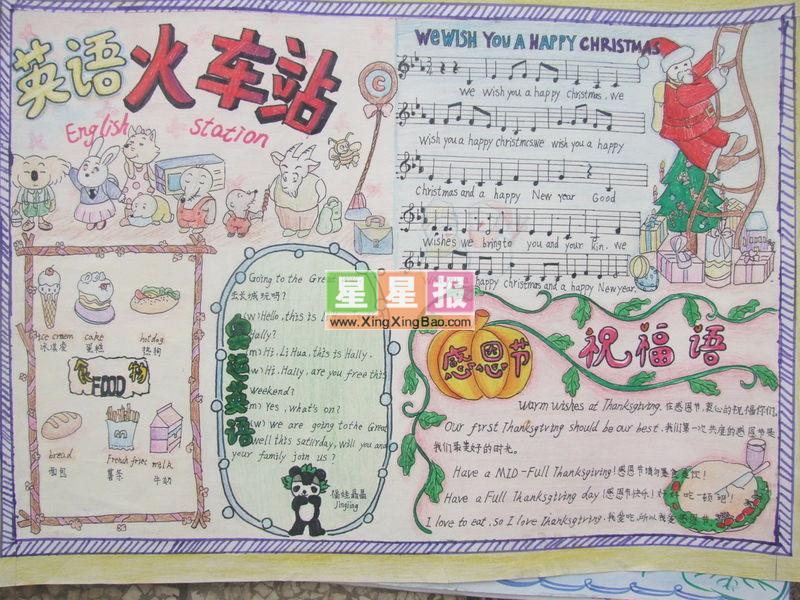 英语火车站
English station
C
WE WISH YOU A HAPPY CHRISTMAS
we wish you a happy christmas. we
wish you a happy christmcs we wish you a happy
christmas and a happy New year Good
wishes we bring to you and your kin. we
you a happy christmas and a happy New year.
星星报
www.XingXingBao.com
ice cream
冰淇凌
cake
蛋糕
hot dog
热狗
食物
FOOD
bread
面包
French fries
薯条
milk
牛奶
Going to the Great
去长城玩吗?
(w) Hello, this is
Hally?
(m) Hi, Li Hua, this is Hally.
(w) Hi, Hally, are you free this
weekend?
(m) Yes, what's on?
(w) we are going to the Great
well this saturday, will you and
your family join us?
英语
福娃晶晶
Jingjing
感恩节
祝福语
Warm wishes at Thanksgiving. 在感恩节,衷心的祝福你们.
Our first Thanksgiving should be our best. 我们第一次共度的感恩节是
我们最美好的时光.
Have a MID-Full Thanksgiving! (感恩节请勿暴食暴饮!
Have a Full Thanksgiving day (感恩节快乐!) 好好吃一顿吧!
I love to eat, so I love Thanksgiving. 我爱吃,所以我爱感恩节.